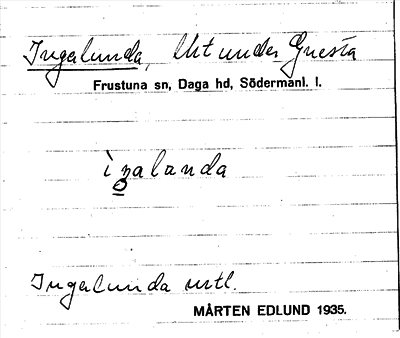 Ingalunda, Ut under Gnesta
Frustuna sn, Daga hd, Södermanl. l.
Ingalunda urtl.
MÅRTEN EDLUND 1935.